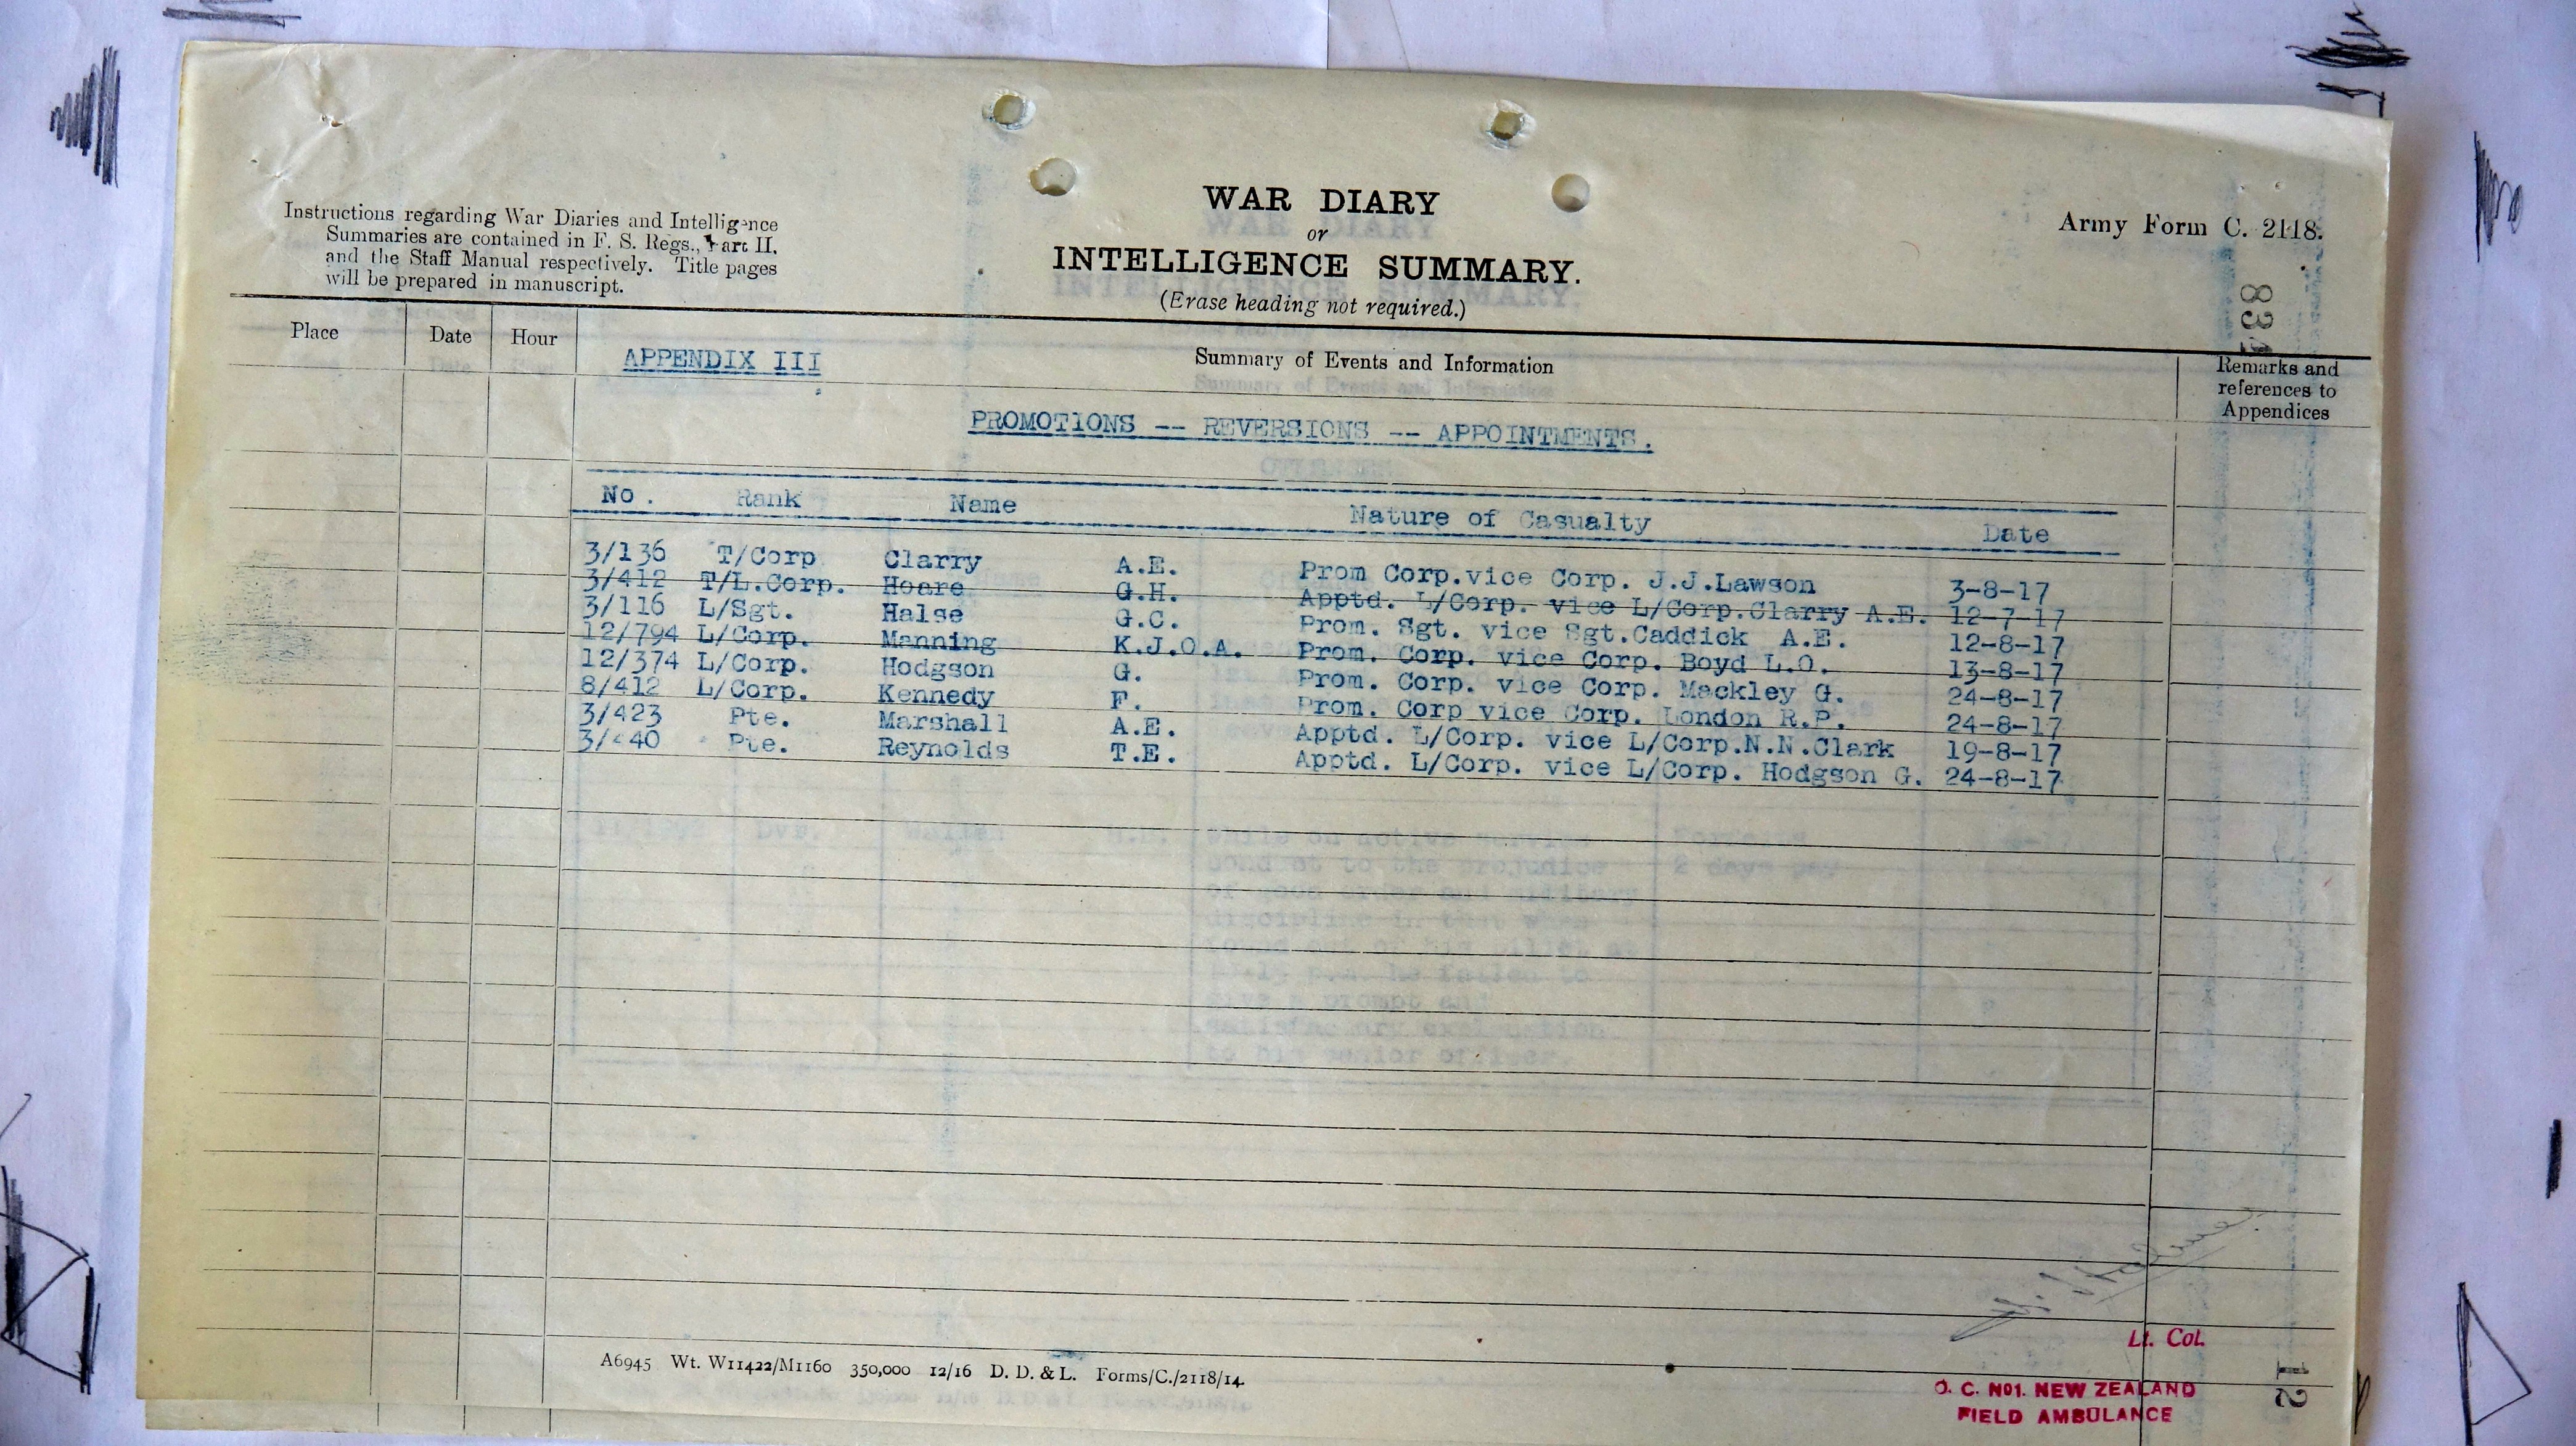 Instructions regarding War Diaries and Intelligence
Summaries are contained in F. S. Regs., Part II.
and the Staff Manual respectively. Title pages
will be prepared in manuscript.
WAR DIARY
or
INTELLIGENCE SUMMARY.
(Erase heading not required.)
Army Form C. 2118.
Place Date Hour Summary of Events and Information Remarks and references to Appendices
APPENDIX III
PROMOTIONS -- REVERSIONS -- APPOINTMENTS.
No. Rank Name Nature of Casualty Date
3/136 T/Corp Clarry A.E. Prom Corp.vice Corp. J.J.Lawson 3-8-17
3/412 T/L.Corp. Hoare G.H. Apptd. L/Corp. vice L/Corp.Clarry A.E. 12-7-17
3/116 L/Sgt. Halse G.C. Prom. Sgt. vice Sgt.Caddick A.E. 12-8-17
12/794 L/Corp. Manning K.J.O.A. Prom. Corp. vice Corp. Boyd L.O. 13-8-17
12/374 L/Corp. Hodgson G. Prom. Corp. vice Corp. Mackley G. 24-8-17
8/412 L/Corp. Kennedy F. Prom. Corp vice Corp. London R.P. 24-8-17
3/423 Pte. Marshall A.E. Apptd. L/Corp. vice L/Corp.N.N.Clark 19-8-17
Pte. Reynolds T.E. Apptd. L/Corp. vice L/Corp. Hodgson G. 24-8-17
Lt. Col.
O. C. No1. NEW ZEALAND
FIELD AMBULANCE
12
A6945 Wt. W11422/M1160 350,000 12/16 D. D. & L. Forms/C./2118/14.